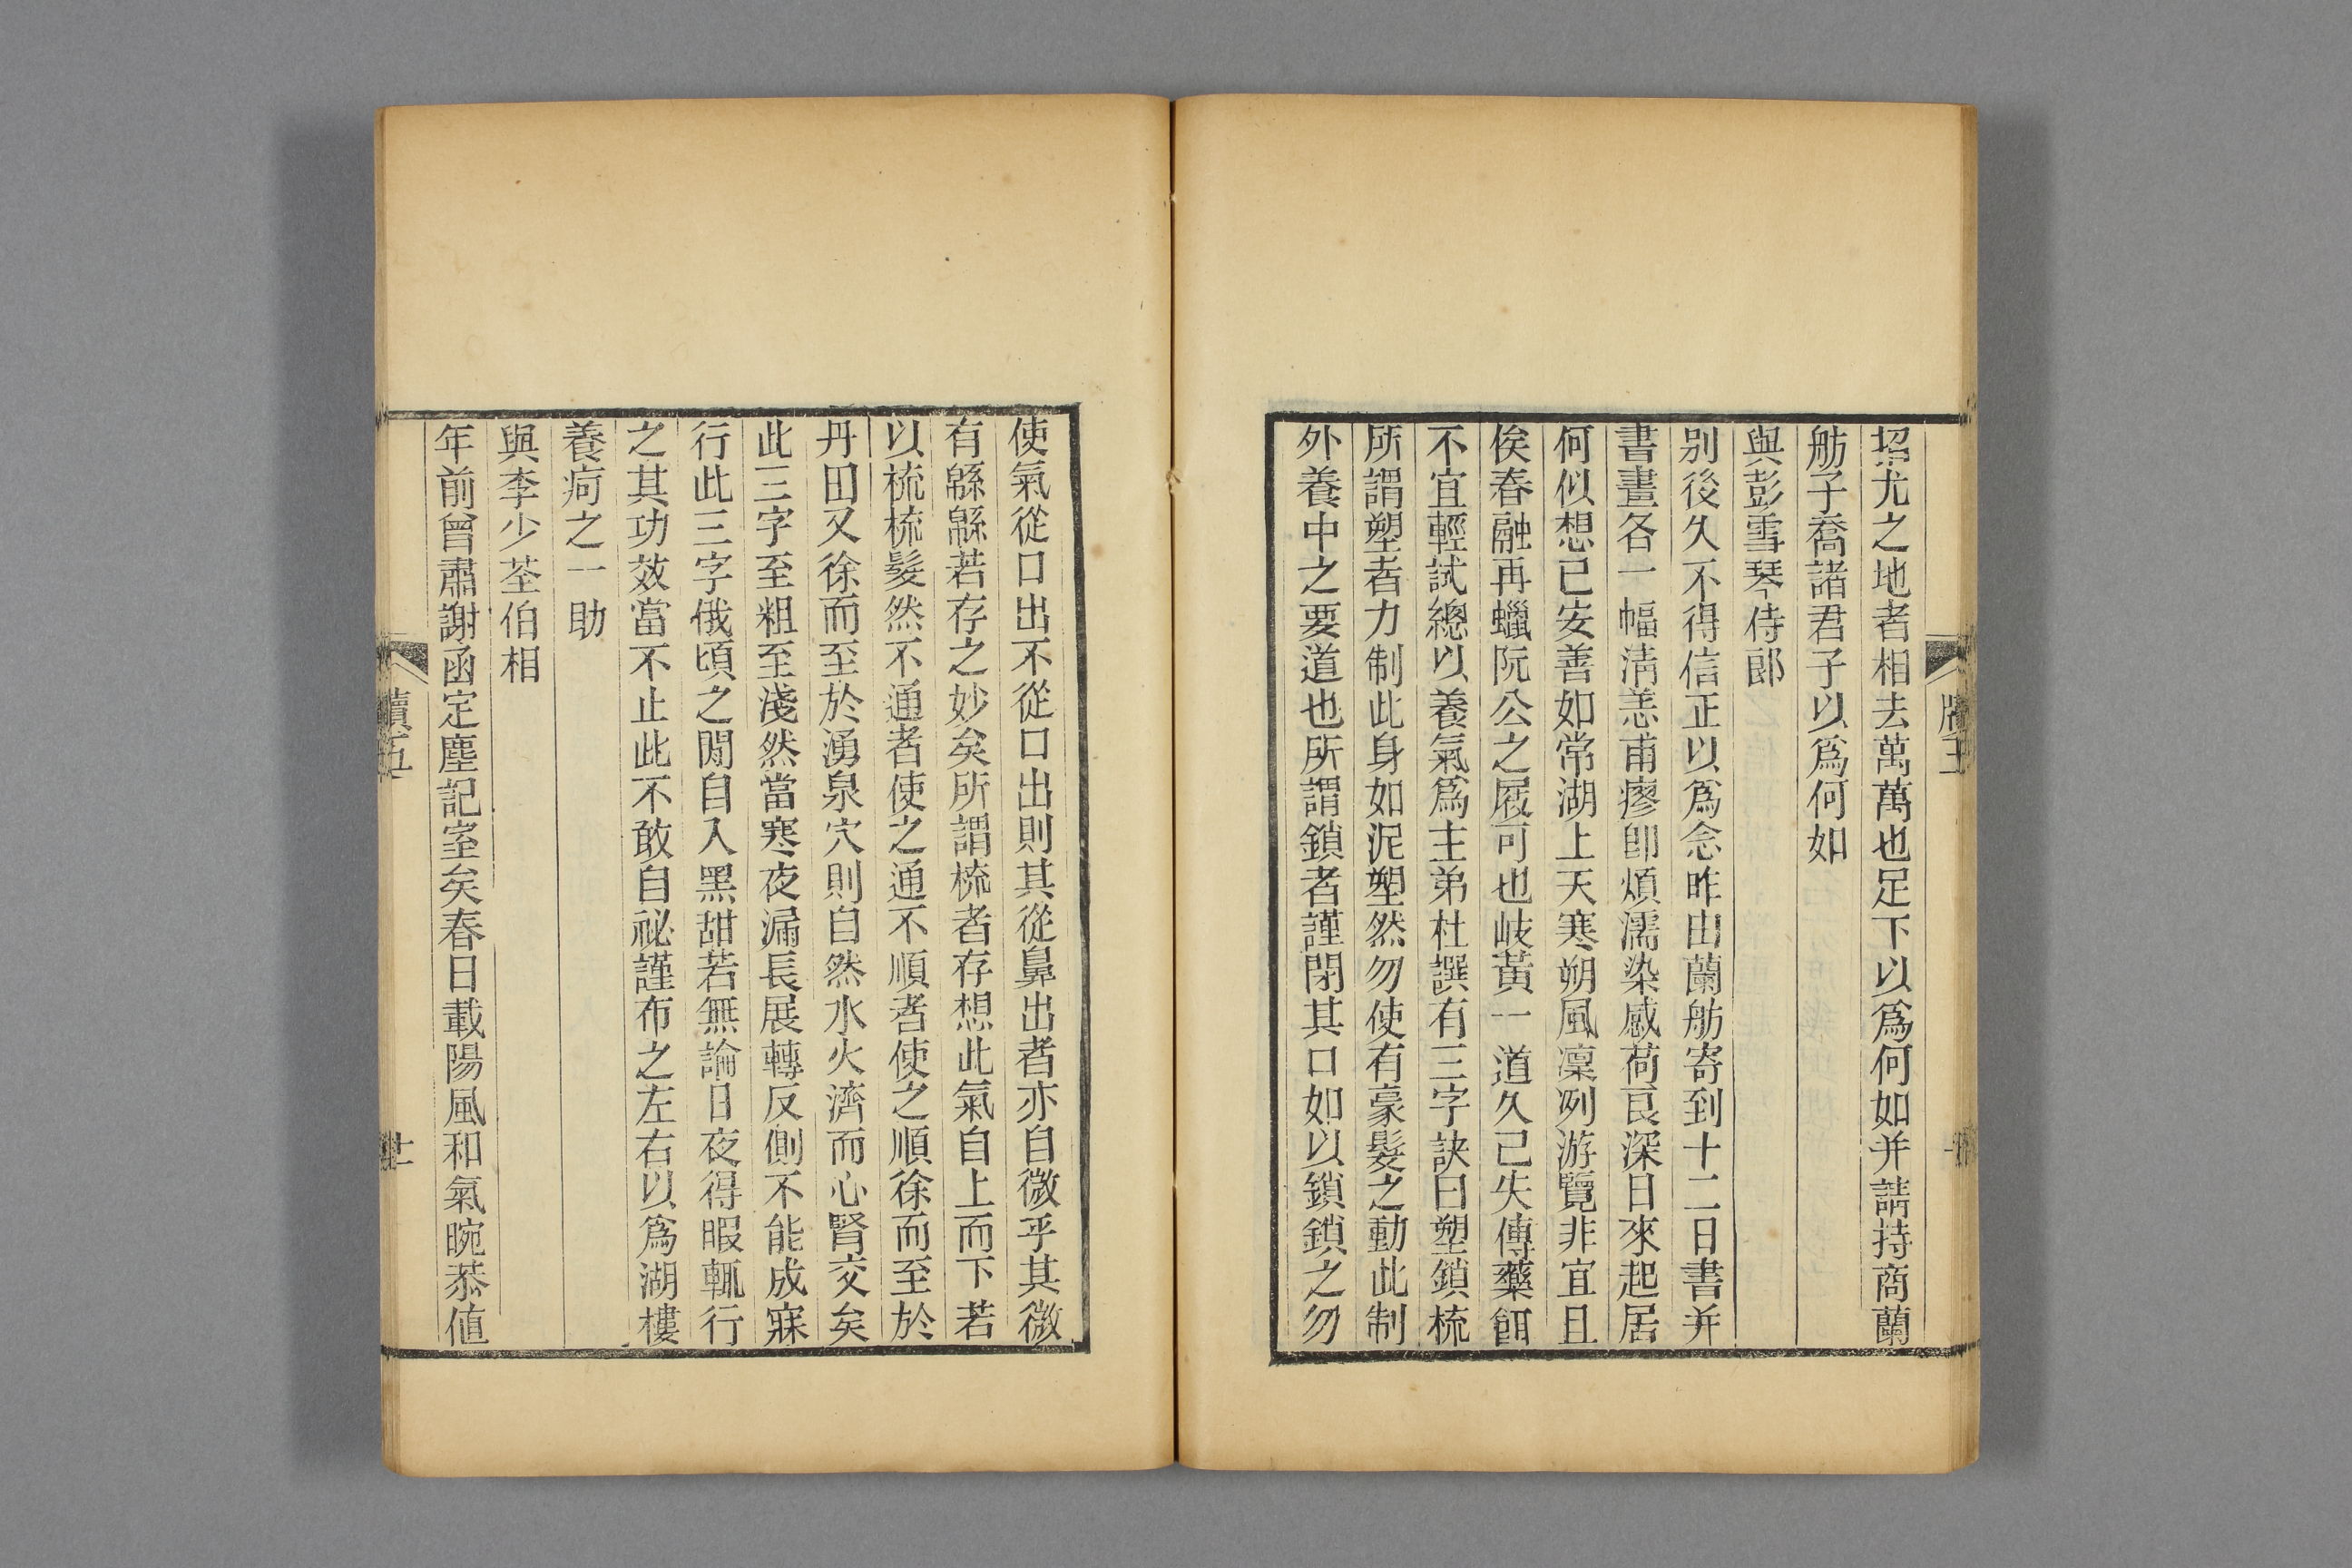 招尤之地者相去萬萬也足下以爲何如并請持商蘭
舫子喬諸君子以爲何如
與彭雪琴侍郎
別後久不得信正以爲念昨由蘭舫寄到十二日書并
書畫各一幅淸恙甫瘳卽煩濡染感荷良深日來起居
何似想已安善如常湖上天寒朔風凜冽游覽非宜且
俟春融再蠟阮公之屐可也岐黃一道久已失傳藥餌
不宜輕試總以養氣爲主弟杜譔有三字訣曰塑鎖梳
所謂塑者力制此身如泥塑然勿使有豪髮之動此制
外養中之要道也所謂鎖者謹閉其口如以鎖鎖之勿
使氣從口出不從口出則其從鼻出者亦自微乎其微
有緜緜若存之妙矣所謂梳者存想此氣自上而下若
以梳梳髮然不通者使之通不順者使之順徐而至於
丹田又徐而至於湧泉穴則自然水火濟而心腎交矣
此三字至粗至淺然當寒夜漏長展轉反側不能成寐
行此三字俄頃之閒自入黑甜若無論日夜得暇輒行
之其功效當不止此不敢自祕謹布之左右以爲湖樓
養疴之一助
與李少荃伯相
年前曾肅謝函定塵記室矣春日載陽風和氣晼恭値
牘五